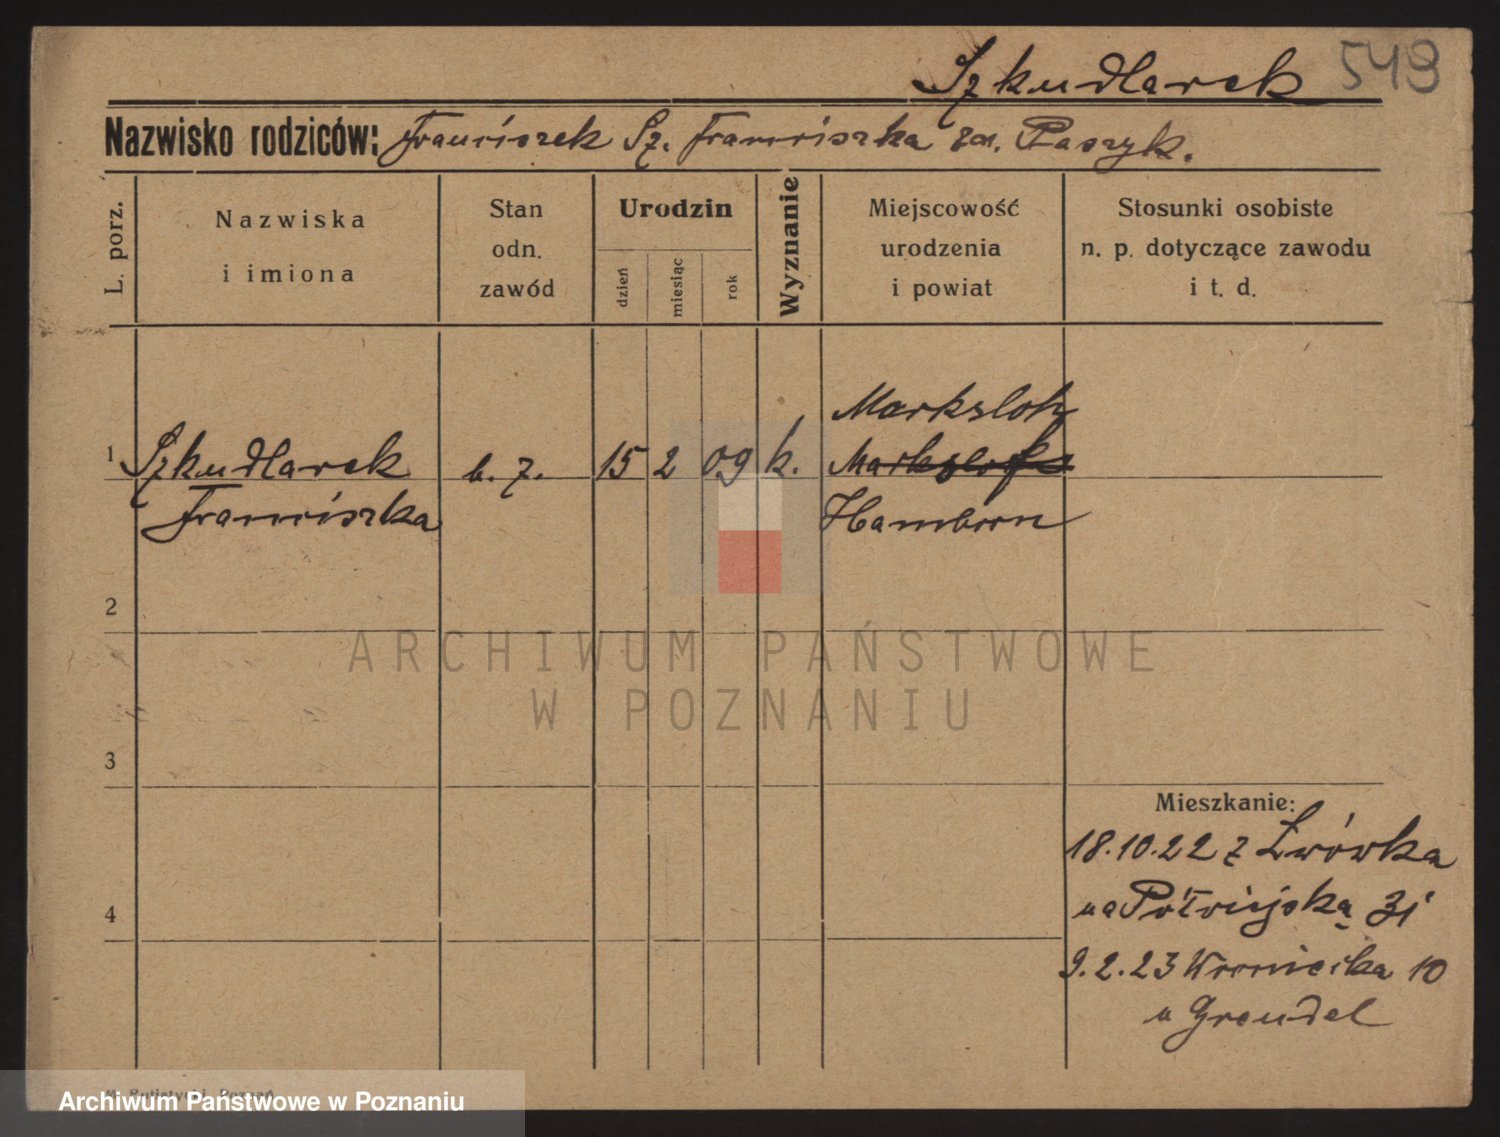 Szkudlarek 549
Nazwisko rodziców: Franciszek Sz. Franciszka Paszyk.
L. porz.
Nazwiska
i imiona
Stan
odn.
zawód
Urodzin
dzień
miesiąc
rok
Wyznanie
Miejscowość
urodzenia
i powiat
Stosunki osobiste
n. p. dotyczące zawodu
i t. d.
Marksloh
1 Szkudlarek b. z. 15 2 09 k.
Franciszka Hamborn
2
ARCHIWUM PAŃSTWOWE
W POZNANIU
3
Mieszkanie:
18.10.22 z Lwówka
4 na Półwiejską 31
9.2.23 Wroniecka 10
u Grendel
Poznań
Archiwum Państwowe w Poznaniu